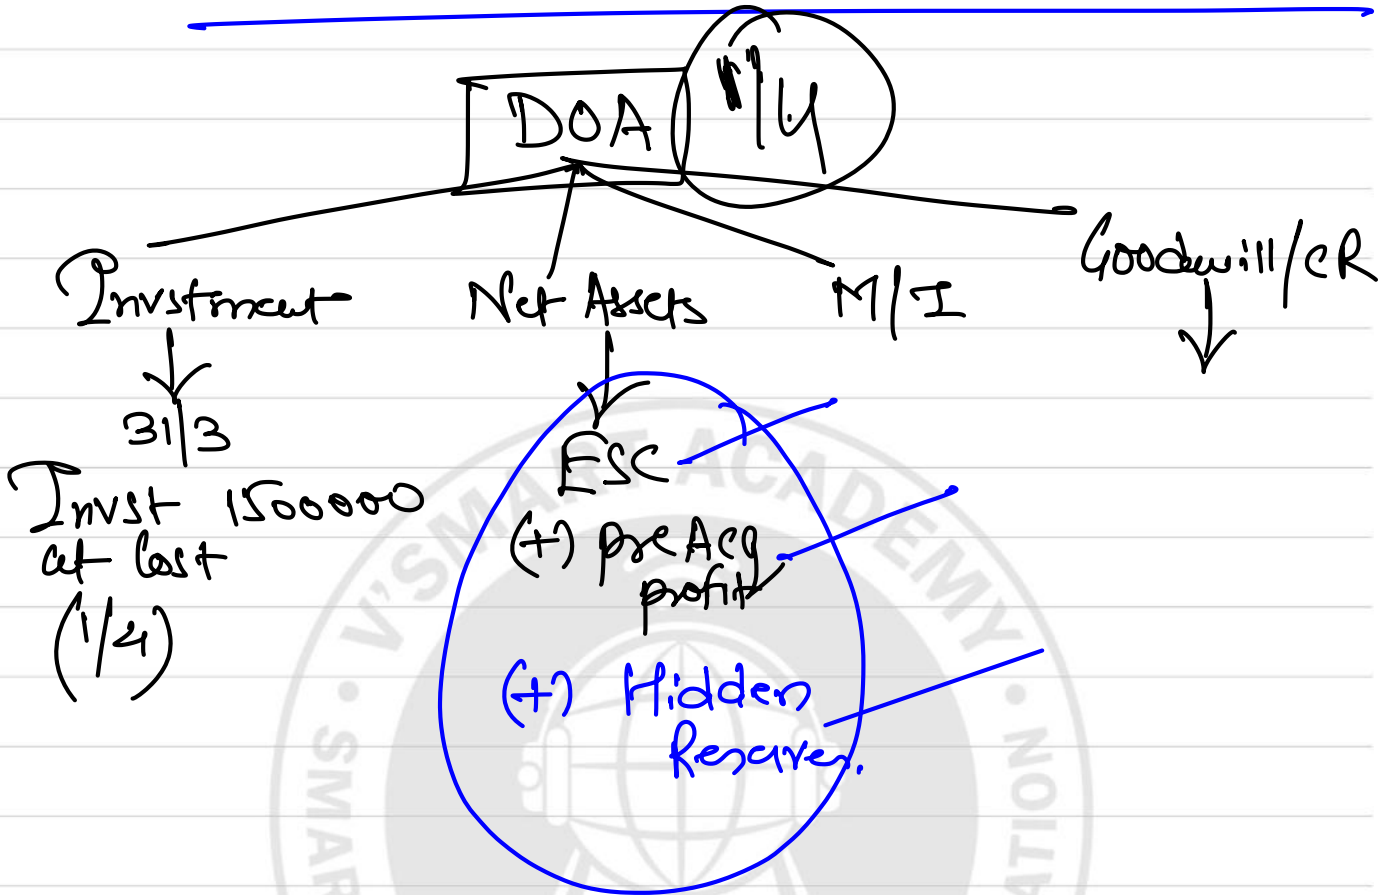 DOA 1/4
Invstment Net Assets M/I Goodwill/CR
31/3
Invst 1500000
at Cost
(1/4)
ESC
(+) pre Acq
profit
(+) Hidden
Reserves.
V'SMART ACADEMY